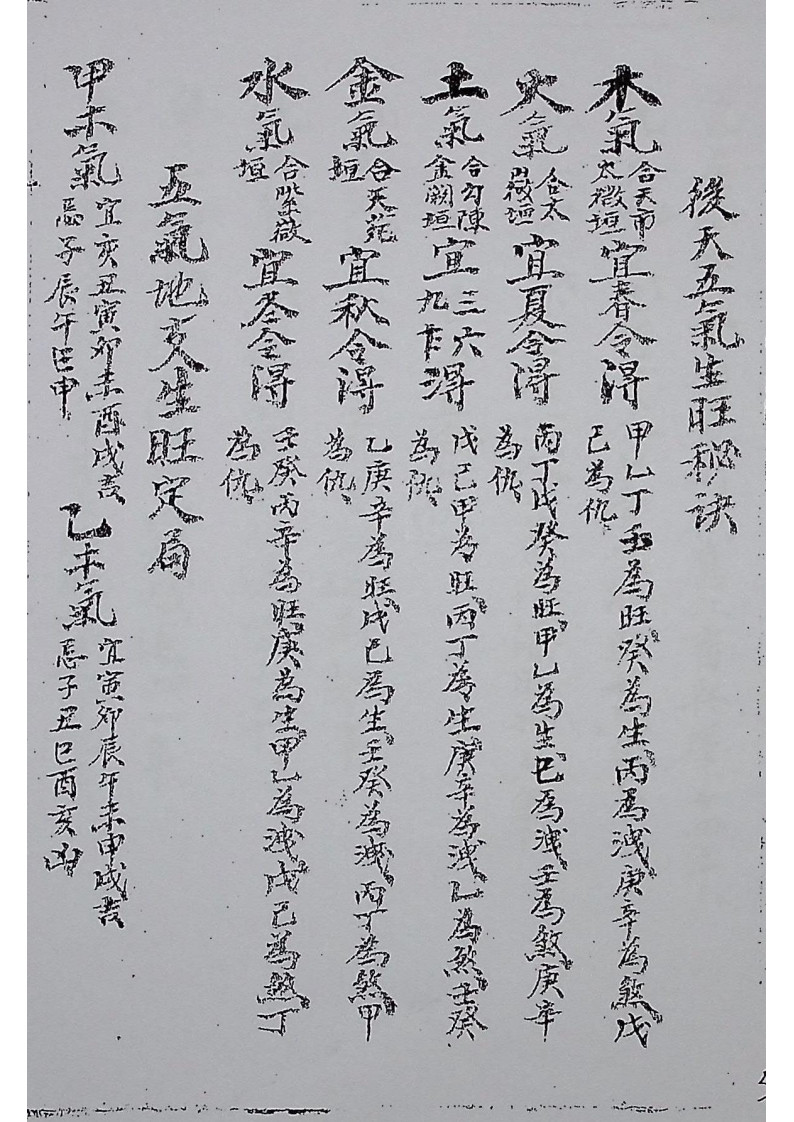 後天五氣生旺秘訣
木氣 合天市太微垣 宜春令得 甲乙丁壬為旺癸為生丙為洩庚辛為煞戊己為仇
火氣 合太微垣 宜夏令得 丙丁戊癸為旺甲乙為生己為洩壬為煞庚辛為仇
土氣 合勾陳金闕垣 宜三六九乍得 戊己甲為旺丙丁為生庚辛為洩乙為煞壬癸為仇
金氣 合天苑垣 宜秋令得 乙庚辛為旺戊己為生壬癸為洩丙丁為煞甲為仇
水氣 合紫微垣 宜冬令得 壬癸丙辛為旺庚為生甲乙為洩戊己為煞丁為仇
五氣地支生旺定局
甲木氣 宜亥丑寅卯未酉戌吉 忌子辰午巳申 乙木氣 宜寅卯辰午未申戌吉 忌子丑巳酉亥凶